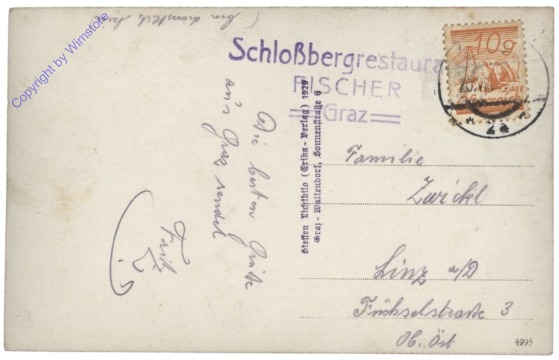 Copyright by Wimstore
Schloßbergrestaura
FISCHER
Graz
10g
2a
Die besten Grüße
aus Graz sendet
Fritz
Steffen Lichtbild (Erika - Verlag) 1929
Graz - Waltendorf, Sonnenstraße 6
Familie
Zwickl
Linz a/D
Füchselstraße 3
Ob. Öst
4995